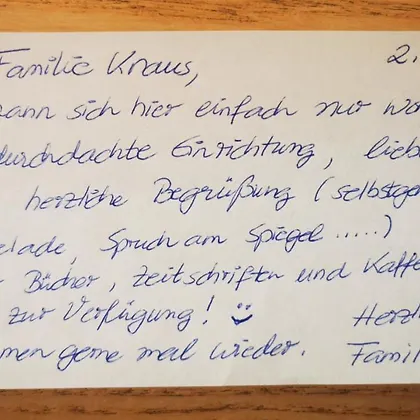 Familie Knaus, 2.
mann sich hier einfach nur wo
durchdachte Einrichtung, lieb
herzliche Begrüßung (selbstge
elade, Spruch am Spiegel .....)
Bücher, Zeitschriften und Kaffe
zur Verfügung! Herzli
men gerne mal wieder. Famili